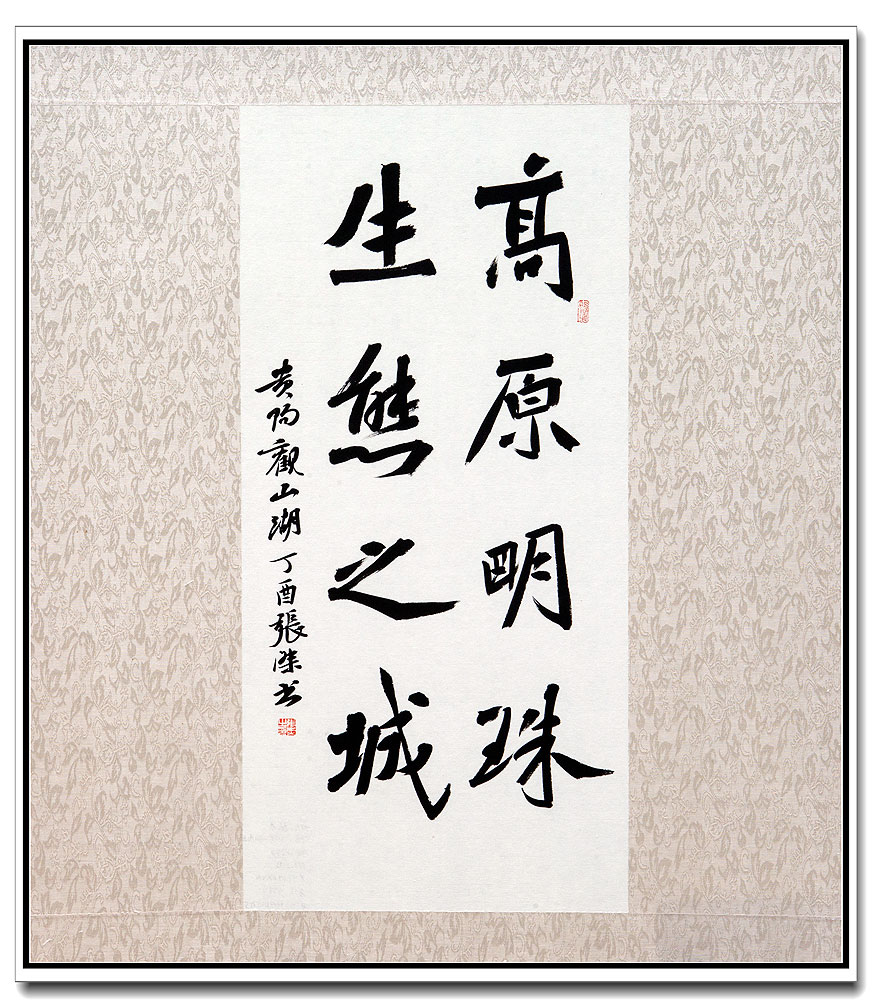 高原明珠
生態之城
贵阳觀山湖丁酉張书